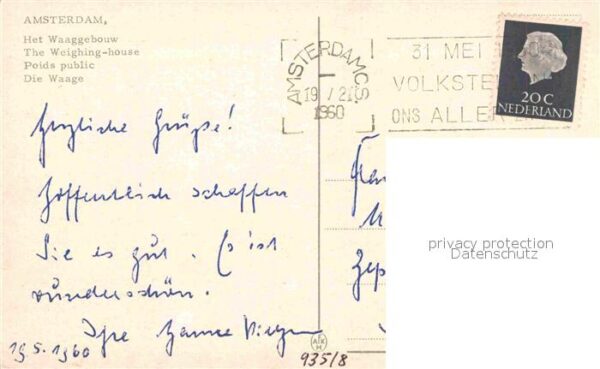 AMSTERDAM,
Het Waaggebouw
The Weighing-house
Poids public
Die Waage
AMSTERDAM C.S.
19 V 21
1960
31 MEI
VOLKSTE
ONS ALLER
20 C
NEDERLAND
Herzliche Grüße!
Hoffentlich schaffen
Sie es gut. Es ist
wunderschön.
Ihre Hanne
19.5.1960
935/8
privacy protection
Datenschutz